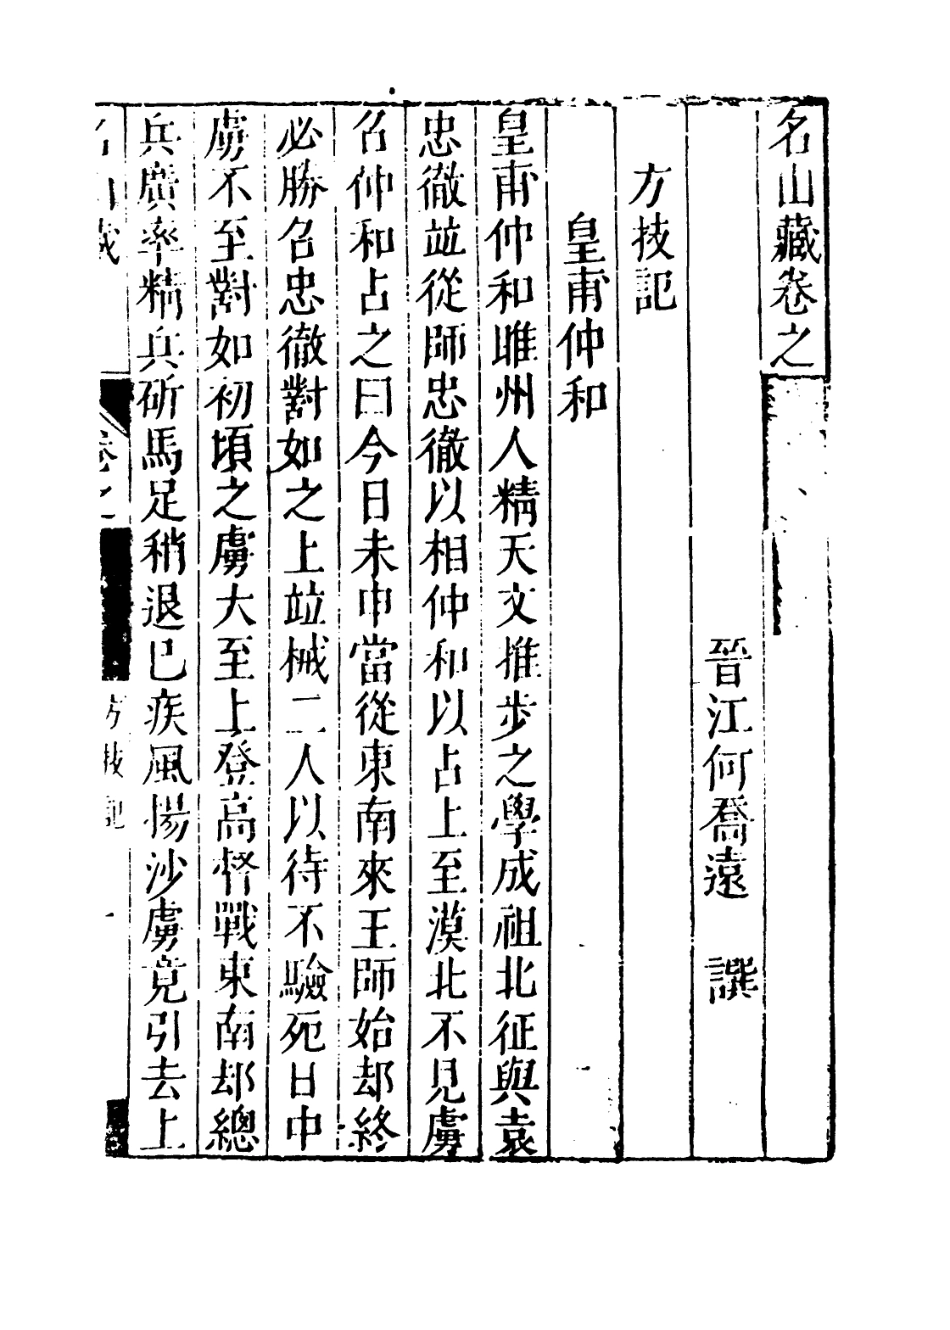 名山藏卷之
晉江何喬遠　譔
方技記
皇甫仲和
皇甫仲和睢州人精天文推步之學成祖北征與袁
忠徹竝從師忠徹以相仲和以占上至漠北不見虜
召仲和占之曰今日未申當從東南來王師始却終
必勝召忠徹對如之上竝械二人以待不驗死日中
虜不至對如初頃之虜大至上登高督戰東南却總
兵廣率精兵斫馬足稍退已疾風揚沙虜竟引去上
名山藏
卷之
方技記
一